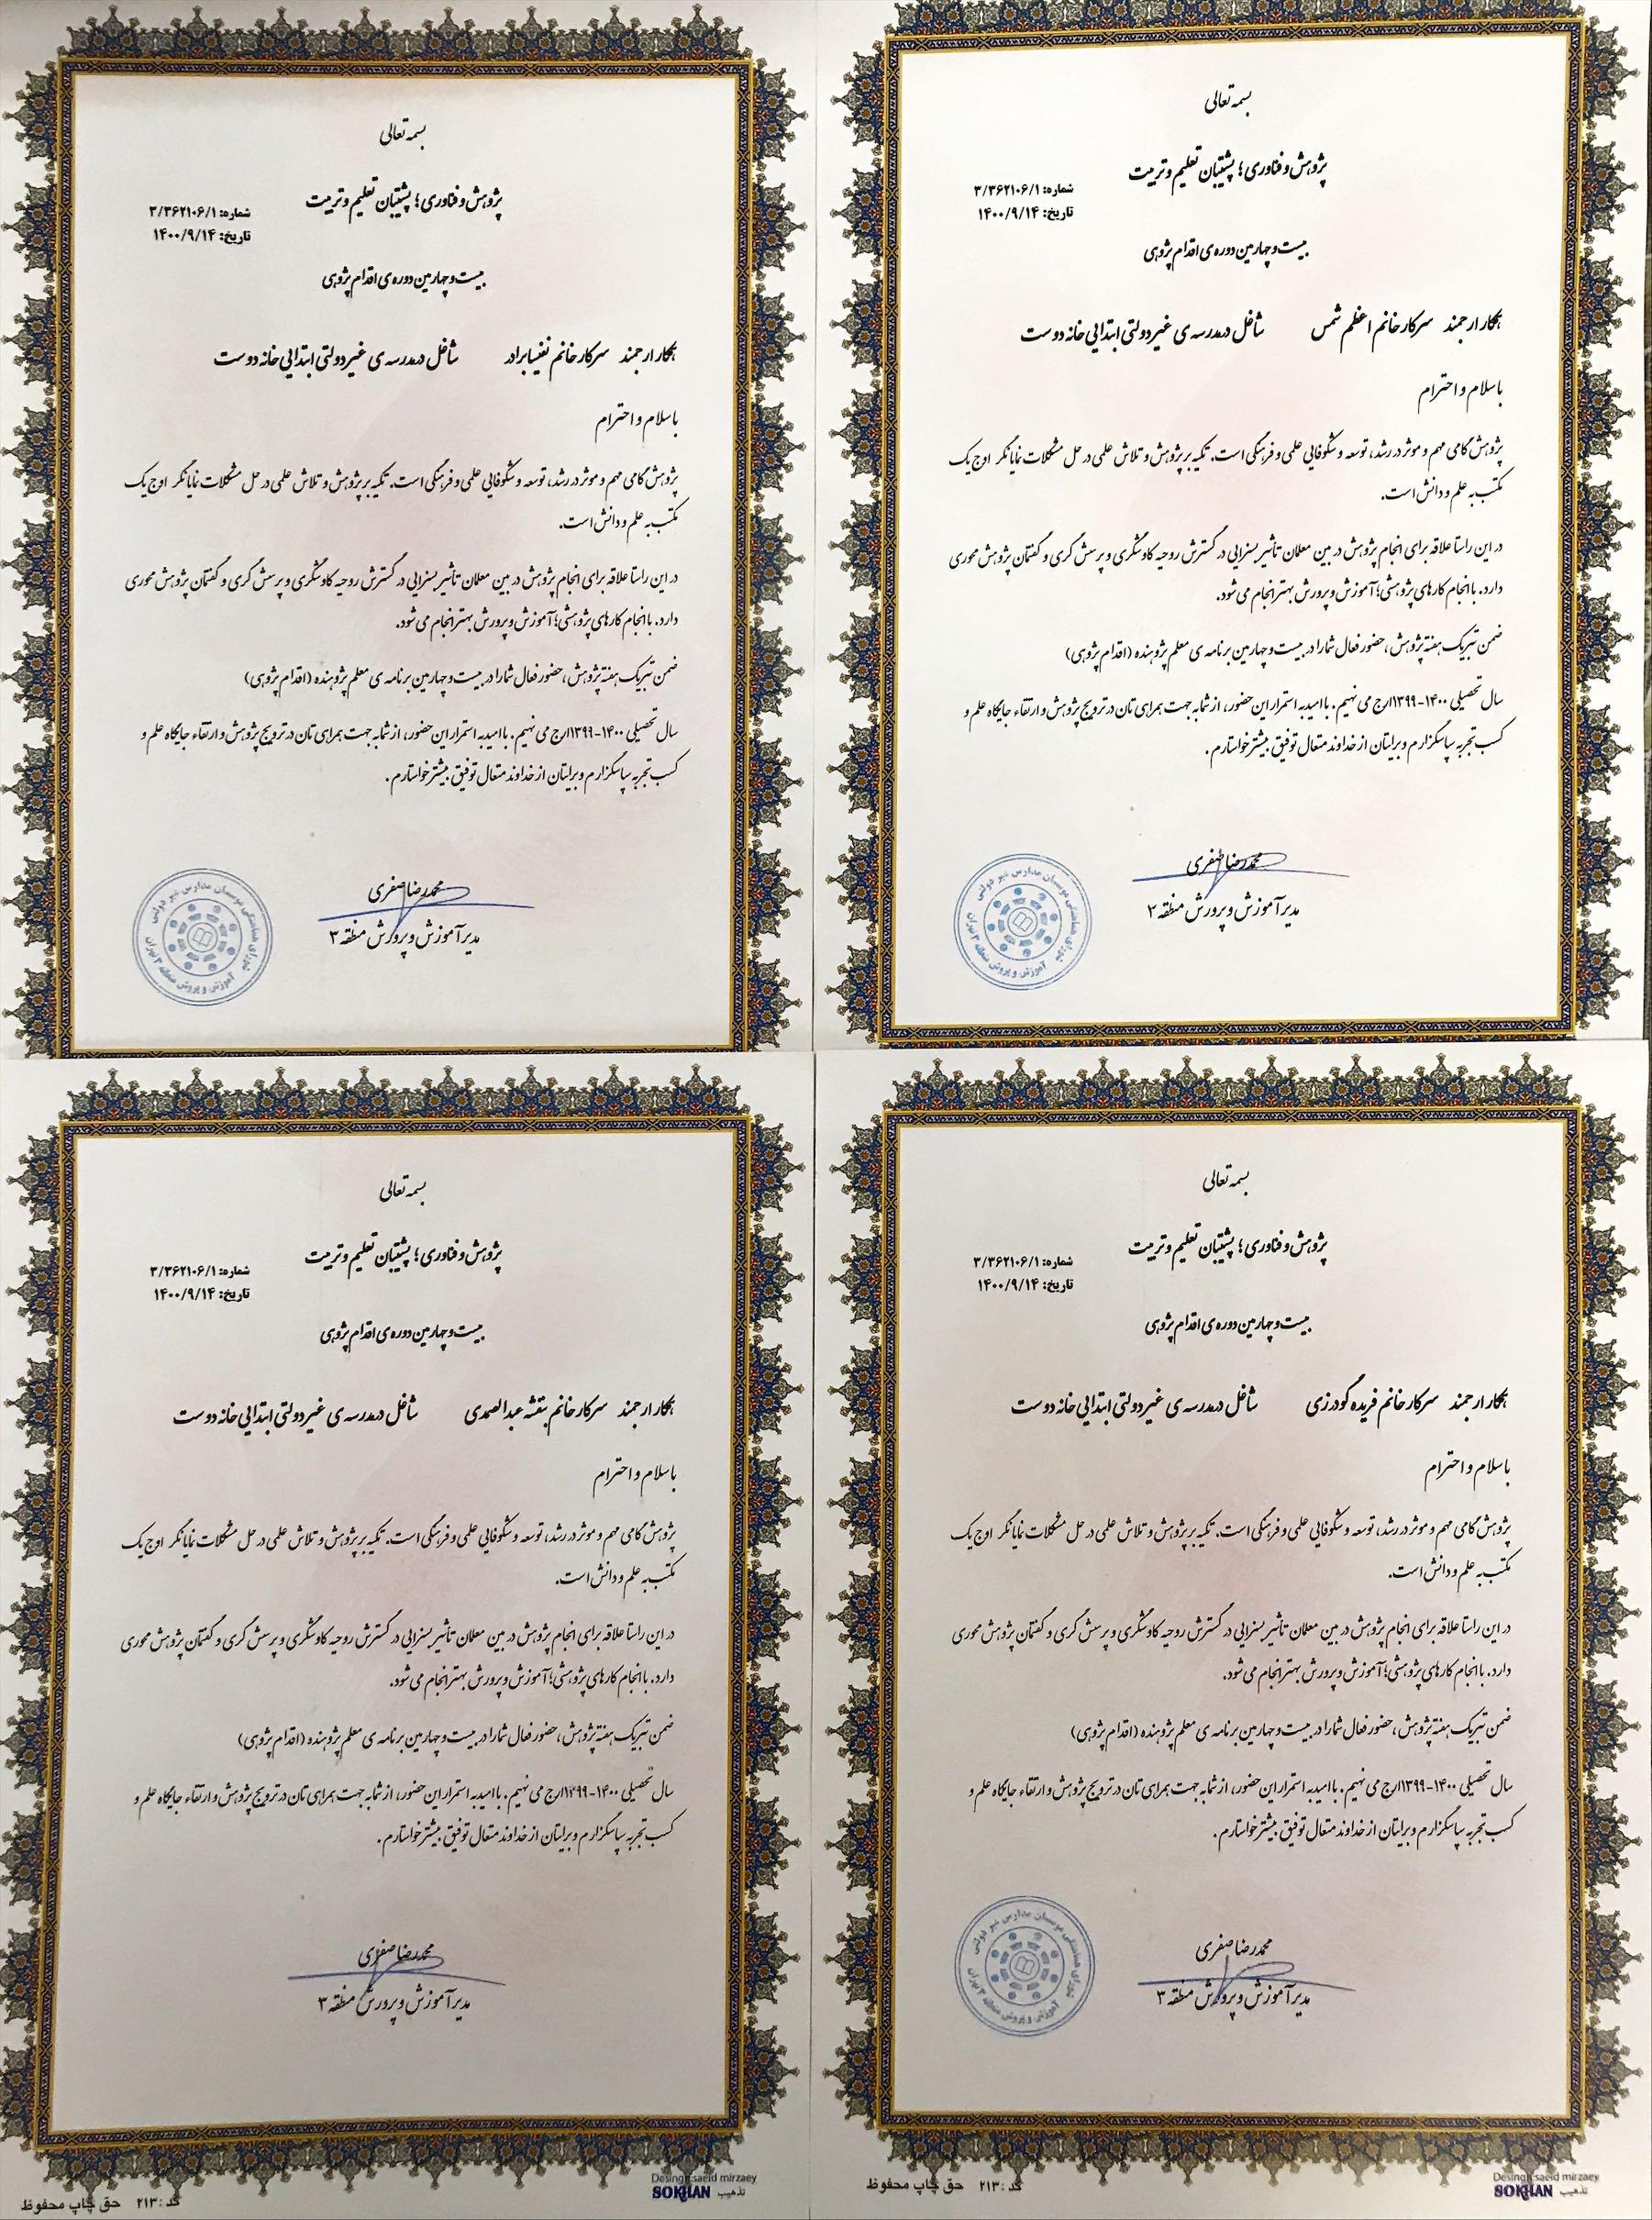 بسمه تعالی
پژوهش و فناوری؛ پشتیبان تعلیم و تربیت
شماره: ۳/۳۶۲۱۰۶/۱
تاریخ: ۱۴۰۰/۹/۱۴
بیست و چهارمین دوره ی اقدام پژوهی
همکار ارجمند سرکار خانم اعظم شمس شاغل در مدرسه ی غیر دولتی ابتدایی خانه دوست
با سلام و احترام
پژوهش گامی مهم و موثر در رشد، توسعه و شکوفایی علمی و فرهنگی است. تکیه بر پژوهش و تلاش علمی در حل مشکلات نمایانگر اوج یک
مکتب به علم و دانش است.
در این راستا علاقه برای انجام پژوهش در بین معلمان تأثیر بسزایی در گسترش روحیه کاوشگری و پرسش گری و گفتمان پژوهش محوری
دارد. با انجام کارهای پژوهشی؛ آموزش و پرورش بهتر انجام می شود.
ضمن تبریک هفته پژوهش، حضور فعال شما را در بیست و چهارمین برنامه ی معلم پژوهنده (اقدام پژوهی)
سال تحصیلی ۱۴۰۰-۱۳۹۹ ارج می نهیم. با امید به استمرار این حضور، از شما به جهت همراهی تان در ترویج پژوهش و ارتقاء جایگاه علم و
کسب تجربه سپاسگزارم و برایتان از خداوند متعال توفیق بیشتر خواستارم.
محمدرضا صفری
مدیر آموزش و پرورش منطقه ۳
شورای هماهنگی موسسان مدارس غیر دولتی
آموزش و پرورش منطقه ۳ تهران
بسمه تعالی
پژوهش و فناوری؛ پشتیبان تعلیم و تربیت
شماره: ۳/۳۶۲۱۰۶/۱
تاریخ: ۱۴۰۰/۹/۱۴
بیست و چهارمین دوره ی اقدام پژوهی
همکار ارجمند سرکار خانم نفیسا برادر شاغل در مدرسه ی غیر دولتی ابتدایی خانه دوست
با سلام و احترام
پژوهش گامی مهم و موثر در رشد، توسعه و شکوفایی علمی و فرهنگی است. تکیه بر پژوهش و تلاش علمی در حل مشکلات نمایانگر اوج یک
مکتب به علم و دانش است.
در این راستا علاقه برای انجام پژوهش در بین معلمان تأثیر بسزایی در گسترش روحیه کاوشگری و پرسش گری و گفتمان پژوهش محوری
دارد. با انجام کارهای پژوهشی؛ آموزش و پرورش بهتر انجام می شود.
ضمن تبریک هفته پژوهش، حضور فعال شما را در بیست و چهارمین برنامه ی معلم پژوهنده (اقدام پژوهی)
سال تحصیلی ۱۴۰۰-۱۳۹۹ ارج می نهیم. با امید به استمرار این حضور، از شما به جهت همراهی تان در ترویج پژوهش و ارتقاء جایگاه علم و
کسب تجربه سپاسگزارم و برایتان از خداوند متعال توفیق بیشتر خواستارم.
محمدرضا صفری
مدیر آموزش و پرورش منطقه ۳
شورای هماهنگی موسسان مدارس غیر دولتی
آموزش و پرورش منطقه ۳ تهران
بسمه تعالی
پژوهش و فناوری؛ پشتیبان تعلیم و تربیت
شماره: ۳/۳۶۲۱۰۶/۱
تاریخ: ۱۴۰۰/۹/۱۴
بیست و چهارمین دوره ی اقدام پژوهی
همکار ارجمند سرکار خانم فریده گودرزی شاغل در مدرسه ی غیر دولتی ابتدایی خانه دوست
با سلام و احترام
پژوهش گامی مهم و موثر در رشد، توسعه و شکوفایی علمی و فرهنگی است. تکیه بر پژوهش و تلاش علمی در حل مشکلات نمایانگر اوج یک
مکتب به علم و دانش است.
در این راستا علاقه برای انجام پژوهش در بین معلمان تأثیر بسزایی در گسترش روحیه کاوشگری و پرسش گری و گفتمان پژوهش محوری
دارد. با انجام کارهای پژوهشی؛ آموزش و پرورش بهتر انجام می شود.
ضمن تبریک هفته پژوهش، حضور فعال شما را در بیست و چهارمین برنامه ی معلم پژوهنده (اقدام پژوهی)
سال تحصیلی ۱۴۰۰-۱۳۹۹ ارج می نهیم. با امید به استمرار این حضور، از شما به جهت همراهی تان در ترویج پژوهش و ارتقاء جایگاه علم و
کسب تجربه سپاسگزارم و برایتان از خداوند متعال توفیق بیشتر خواستارم.
محمدرضا صفری
مدیر آموزش و پرورش منطقه ۳
شورای هماهنگی موسسان مدارس غیر دولتی
آموزش و پرورش منطقه ۳ تهران
Desingh:saeid mirzaey
SOKHAN تذهیب
کد: ۲۱۳ حق چاپ محفوظ
بسمه تعالی
پژوهش و فناوری؛ پشتیبان تعلیم و تربیت
شماره: ۳/۳۶۲۱۰۶/۱
تاریخ: ۱۴۰۰/۹/۱۴
بیست و چهارمین دوره ی اقدام پژوهی
همکار ارجمند سرکار خانم بنفشه عبدالصمدی شاغل در مدرسه ی غیر دولتی ابتدایی خانه دوست
با سلام و احترام
پژوهش گامی مهم و موثر در رشد، توسعه و شکوفایی علمی و فرهنگی است. تکیه بر پژوهش و تلاش علمی در حل مشکلات نمایانگر اوج یک
مکتب به علم و دانش است.
در این راستا علاقه برای انجام پژوهش در بین معلمان تأثیر بسزایی در گسترش روحیه کاوشگری و پرسش گری و گفتمان پژوهش محوری
دارد. با انجام کارهای پژوهشی؛ آموزش و پرورش بهتر انجام می شود.
ضمن تبریک هفته پژوهش، حضور فعال شما را در بیست و چهارمین برنامه ی معلم پژوهنده (اقدام پژوهی)
سال تحصیلی ۱۴۰۰-۱۳۹۹ ارج می نهیم. با امید به استمرار این حضور، از شما به جهت همراهی تان در ترویج پژوهش و ارتقاء جایگاه علم و
کسب تجربه سپاسگزارم و برایتان از خداوند متعال توفیق بیشتر خواستارم.
محمدرضا صفری
مدیر آموزش و پرورش منطقه ۳
Desingh:saeid mirzaey
SOKHAN تذهیب
کد: ۲۱۳ حق چاپ محفوظ